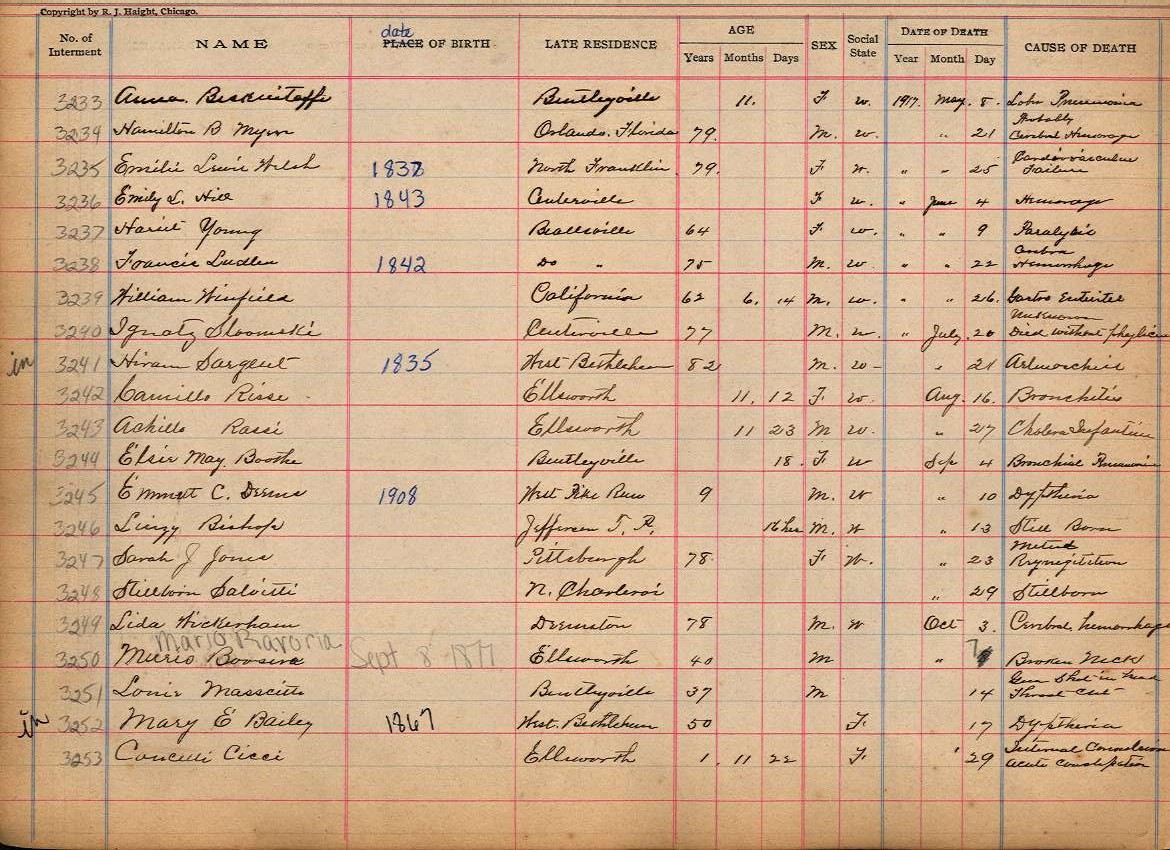 Copyright by R. J. Haight, Chicago.
No. of Interment NAME date PLACE OF BIRTH LATE RESIDENCE AGE Years Months Days SEX Social State DATE OF DEATH Year Month Day CAUSE OF DEATH
3233 Anna Bentleyville 11. F w. 1917. May. 8. Pneumonia
Probably
3234 Hamilton B Myers Orlando. Florida 79. M. w. " 21 Cerebral Hemorage
3235 Emilie Lewis Welsh North Franklin. 79. F w. " " 25 Cardiovascular
Failure
3236 Emily L. Hill 1843 Centerville F w. " June 4 Hemorage
3237 Hariet Young Beallsville 64 F. w. " " 9 Paralysis
3238 Francis 1842 Do " 75 M. w " " 22
Hemorrhage
3239 William Winfield California 62 6. 14 M. w. " " 26. Gastro
Unknown
3240 Ignatz Centerville 77 M. w. " July. 20 Died without physician
in 3241 Hiram Sargent 1835 West Bethlehem 82 M. w- " 21
3242 Camillo Risse Ellsworth 11. 12 F. w. Aug. 16. Bronchitis
3243 Achille Rassi Ellsworth 11 23 M w. " 27 Cholera Infantum
3244 Elsie May. Boothe Bentleyville 18. F w Sep 4 Bronchial Pneumonia
3245 Emmet C. Deems 1908 West Pike Run 9 M. w " 10 Dyptheria
3246 Bishop Jefferson T. P. 16 hrs M. w " 13 Still Born
3247 Sarah J Jones Pittsburgh 78. F w. " 23 Mitral
3248 Stillborn N. Charleroi " 29 Stillborn
3249 Lida Wickerham Deemston 78 M. w Oct 3. Cerebral. hemorrhage
Mario Ravoria
3250 Sept 8 1877 Ellsworth 40 M " 7 Broken Neck
3251 Louie Bentleyville 37 M 14 Gun Shot in head
Throat Cut
in 3252 Mary E Bailey 1867 West. Bethlehem 50 F. 17 Dyptheria
3253 Cicci Ellsworth 1. 11 22 F. " 29 Internal Convulsion
acute constipation